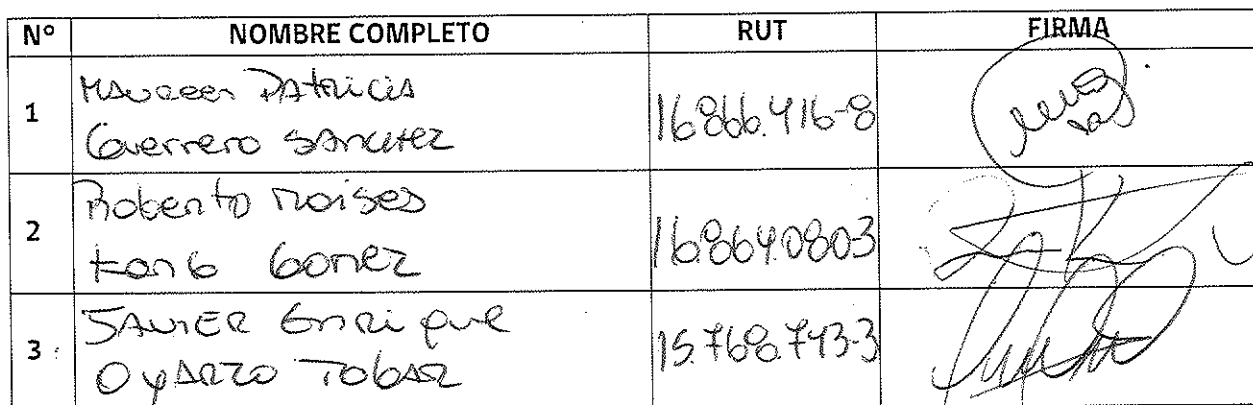 N° NOMBRE COMPLETO RUT FIRMA
1 Maureen Patricia
Guerrero Sanchez
16.866.416-8
2 Roberto Moises
Gomez
16.864.080-3
3 Javier Enrique
Oyarzo Tobar
15.768.743-3